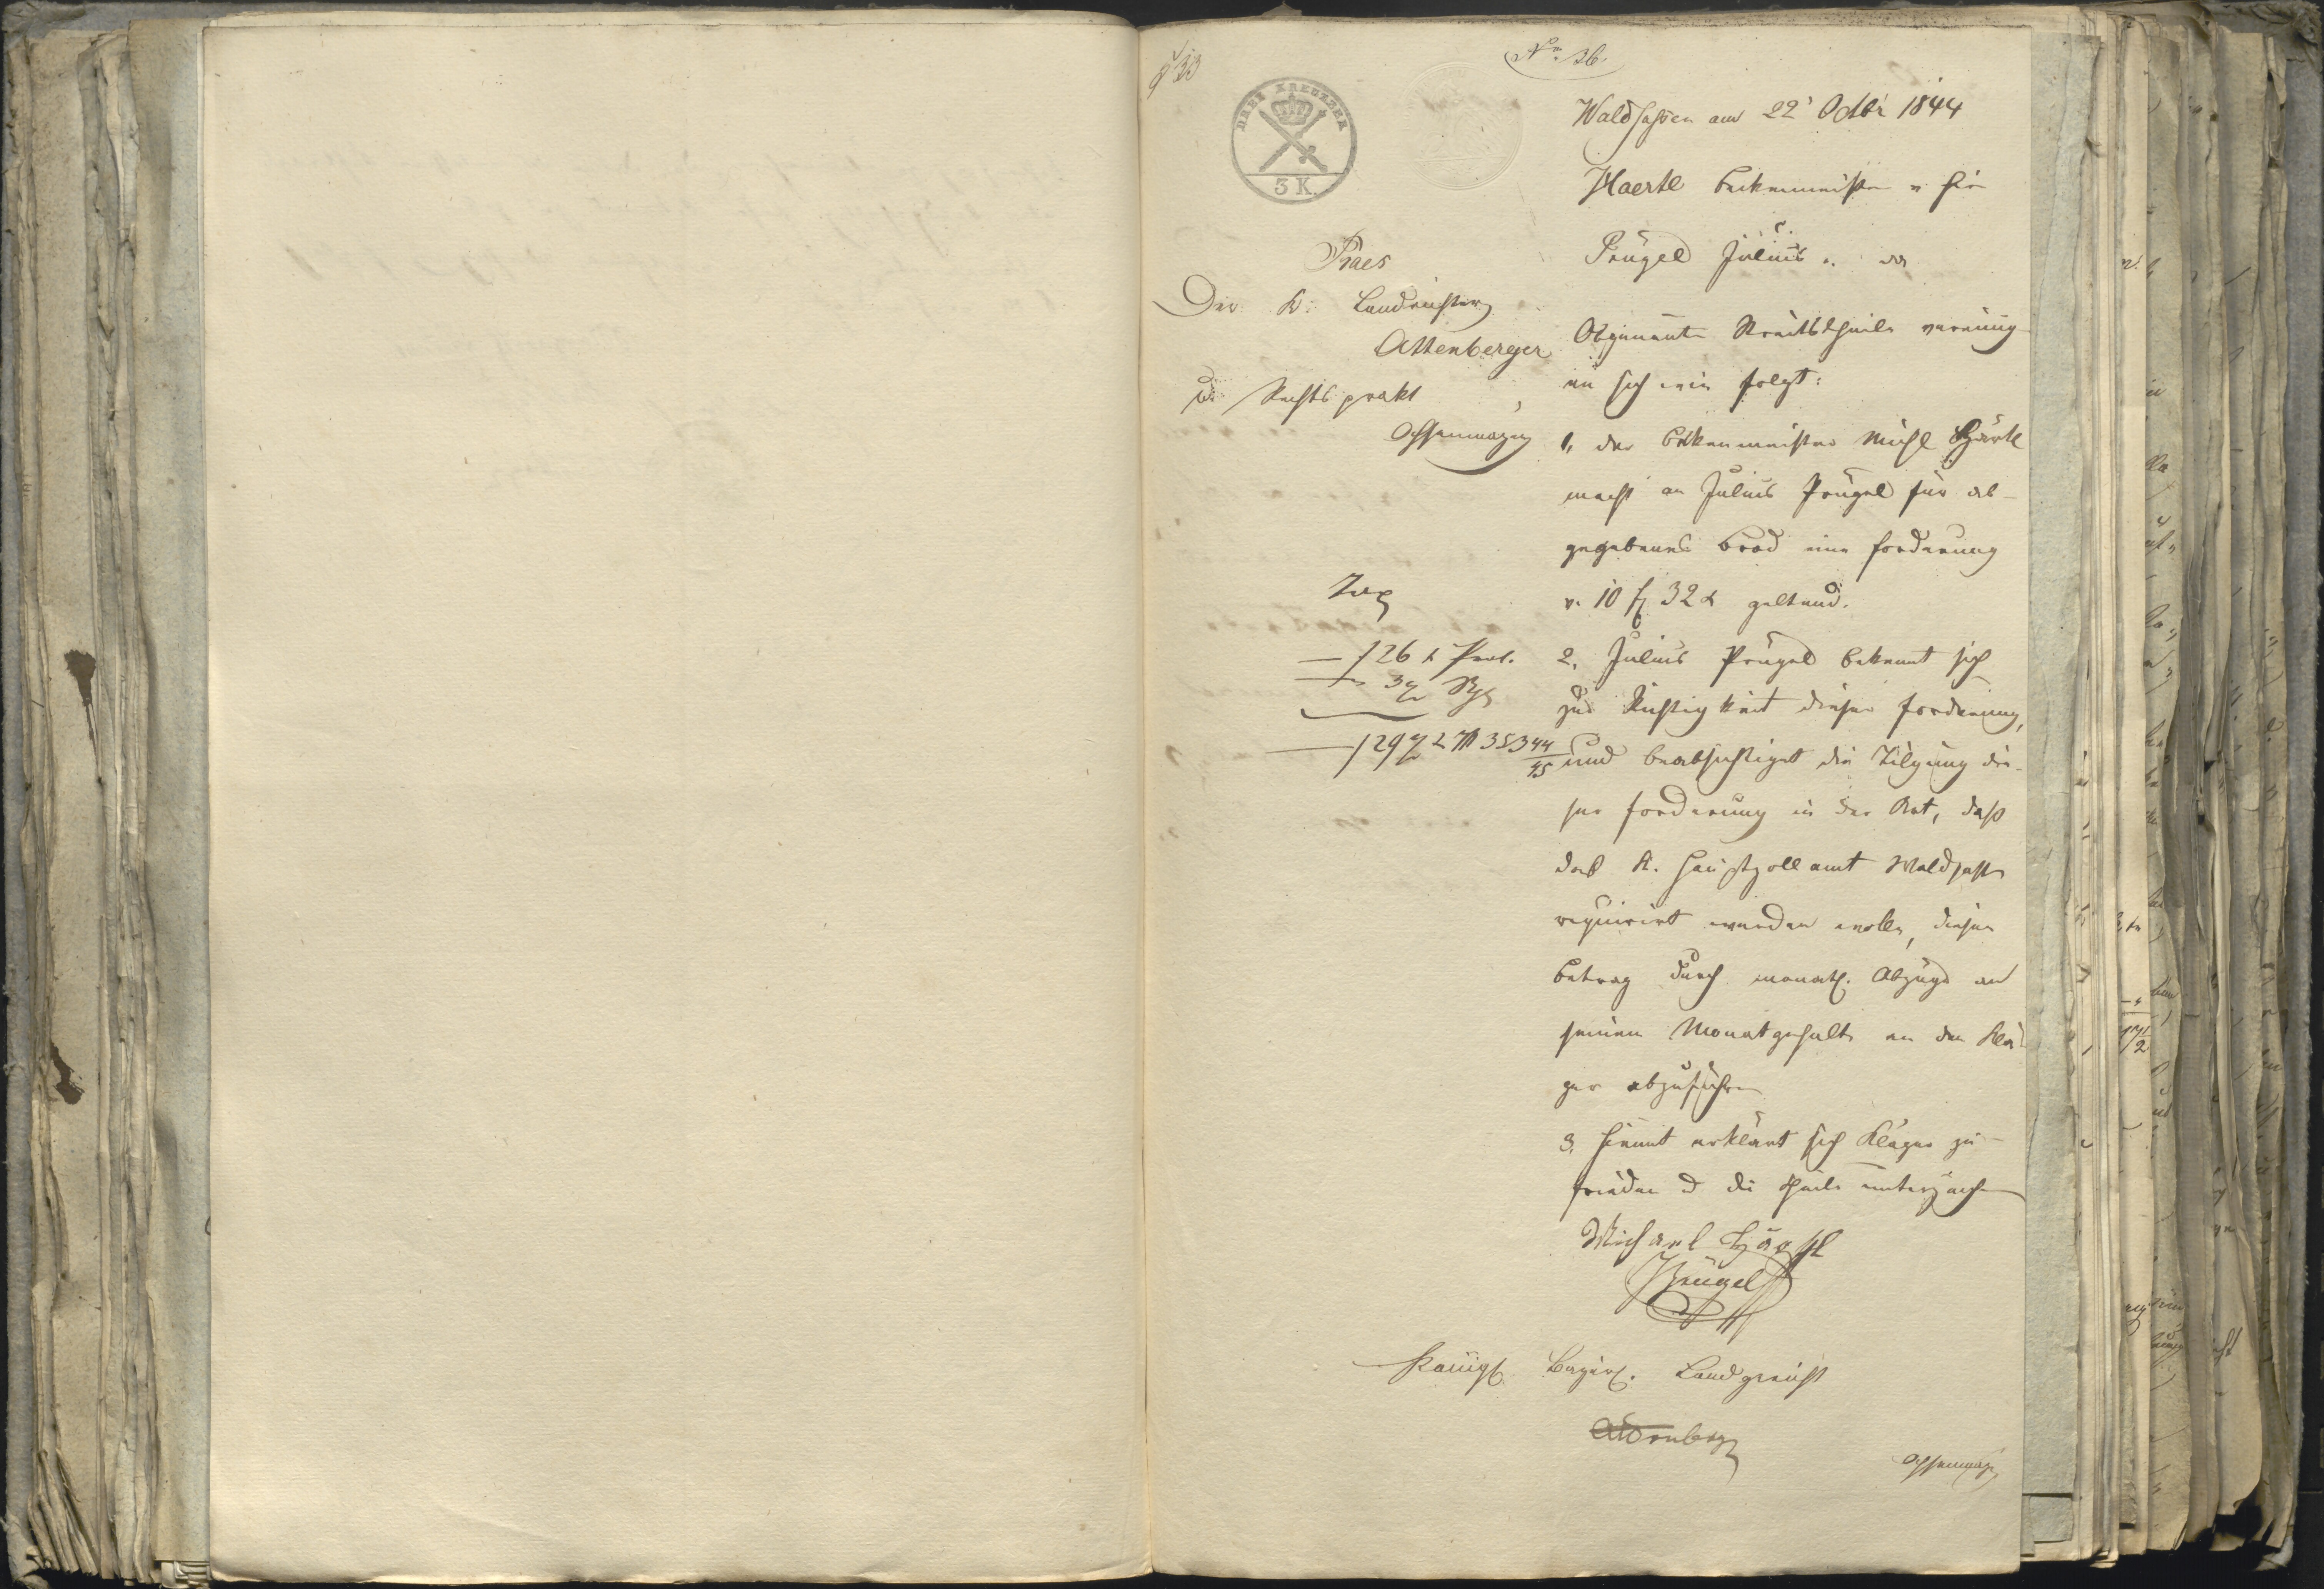 No 36.
DREI KREUZER
3 K.
Waldsassen am 22' Octbr 1844
Haertl Beckenmeister v. hier
Prügel Julius v. da
Praes
Der K. Landrichter
Attenberger
d. Rechtsprakt
Ochsenmayer
Obgenannte Streitstheile vereinig-
en sich wie folgt:
1, der Beckenmeister Michl Härtl
macht an Julius Prügel für ab-
gegebenes Brod eine Forderung
v. 10 f 32 x geltend.
Tax
— f 26 x Prot.
— 3 ½
— f 29 ½ x 353 44/45
2, Julius Prügel bekennt sich
zur Richtigkeit dieser Forderung,
und beabsichtiget die Tilgung die-
ser Forderung in der Art, daß
das K. Hauptzollamt Waldsassen
requirirt werden wolle, diesen
Betrag durch monatl. Abzüge an
seinem Monatgehalte an den Klä-
ger abzuführen
3, Hiemit erklärt sich Kläger zu-
frieden & die Theile unterzeichnen
Michael Härtl
Prügel
Königl. Bayer. Landgericht
Attenberger
Ochsenmayer